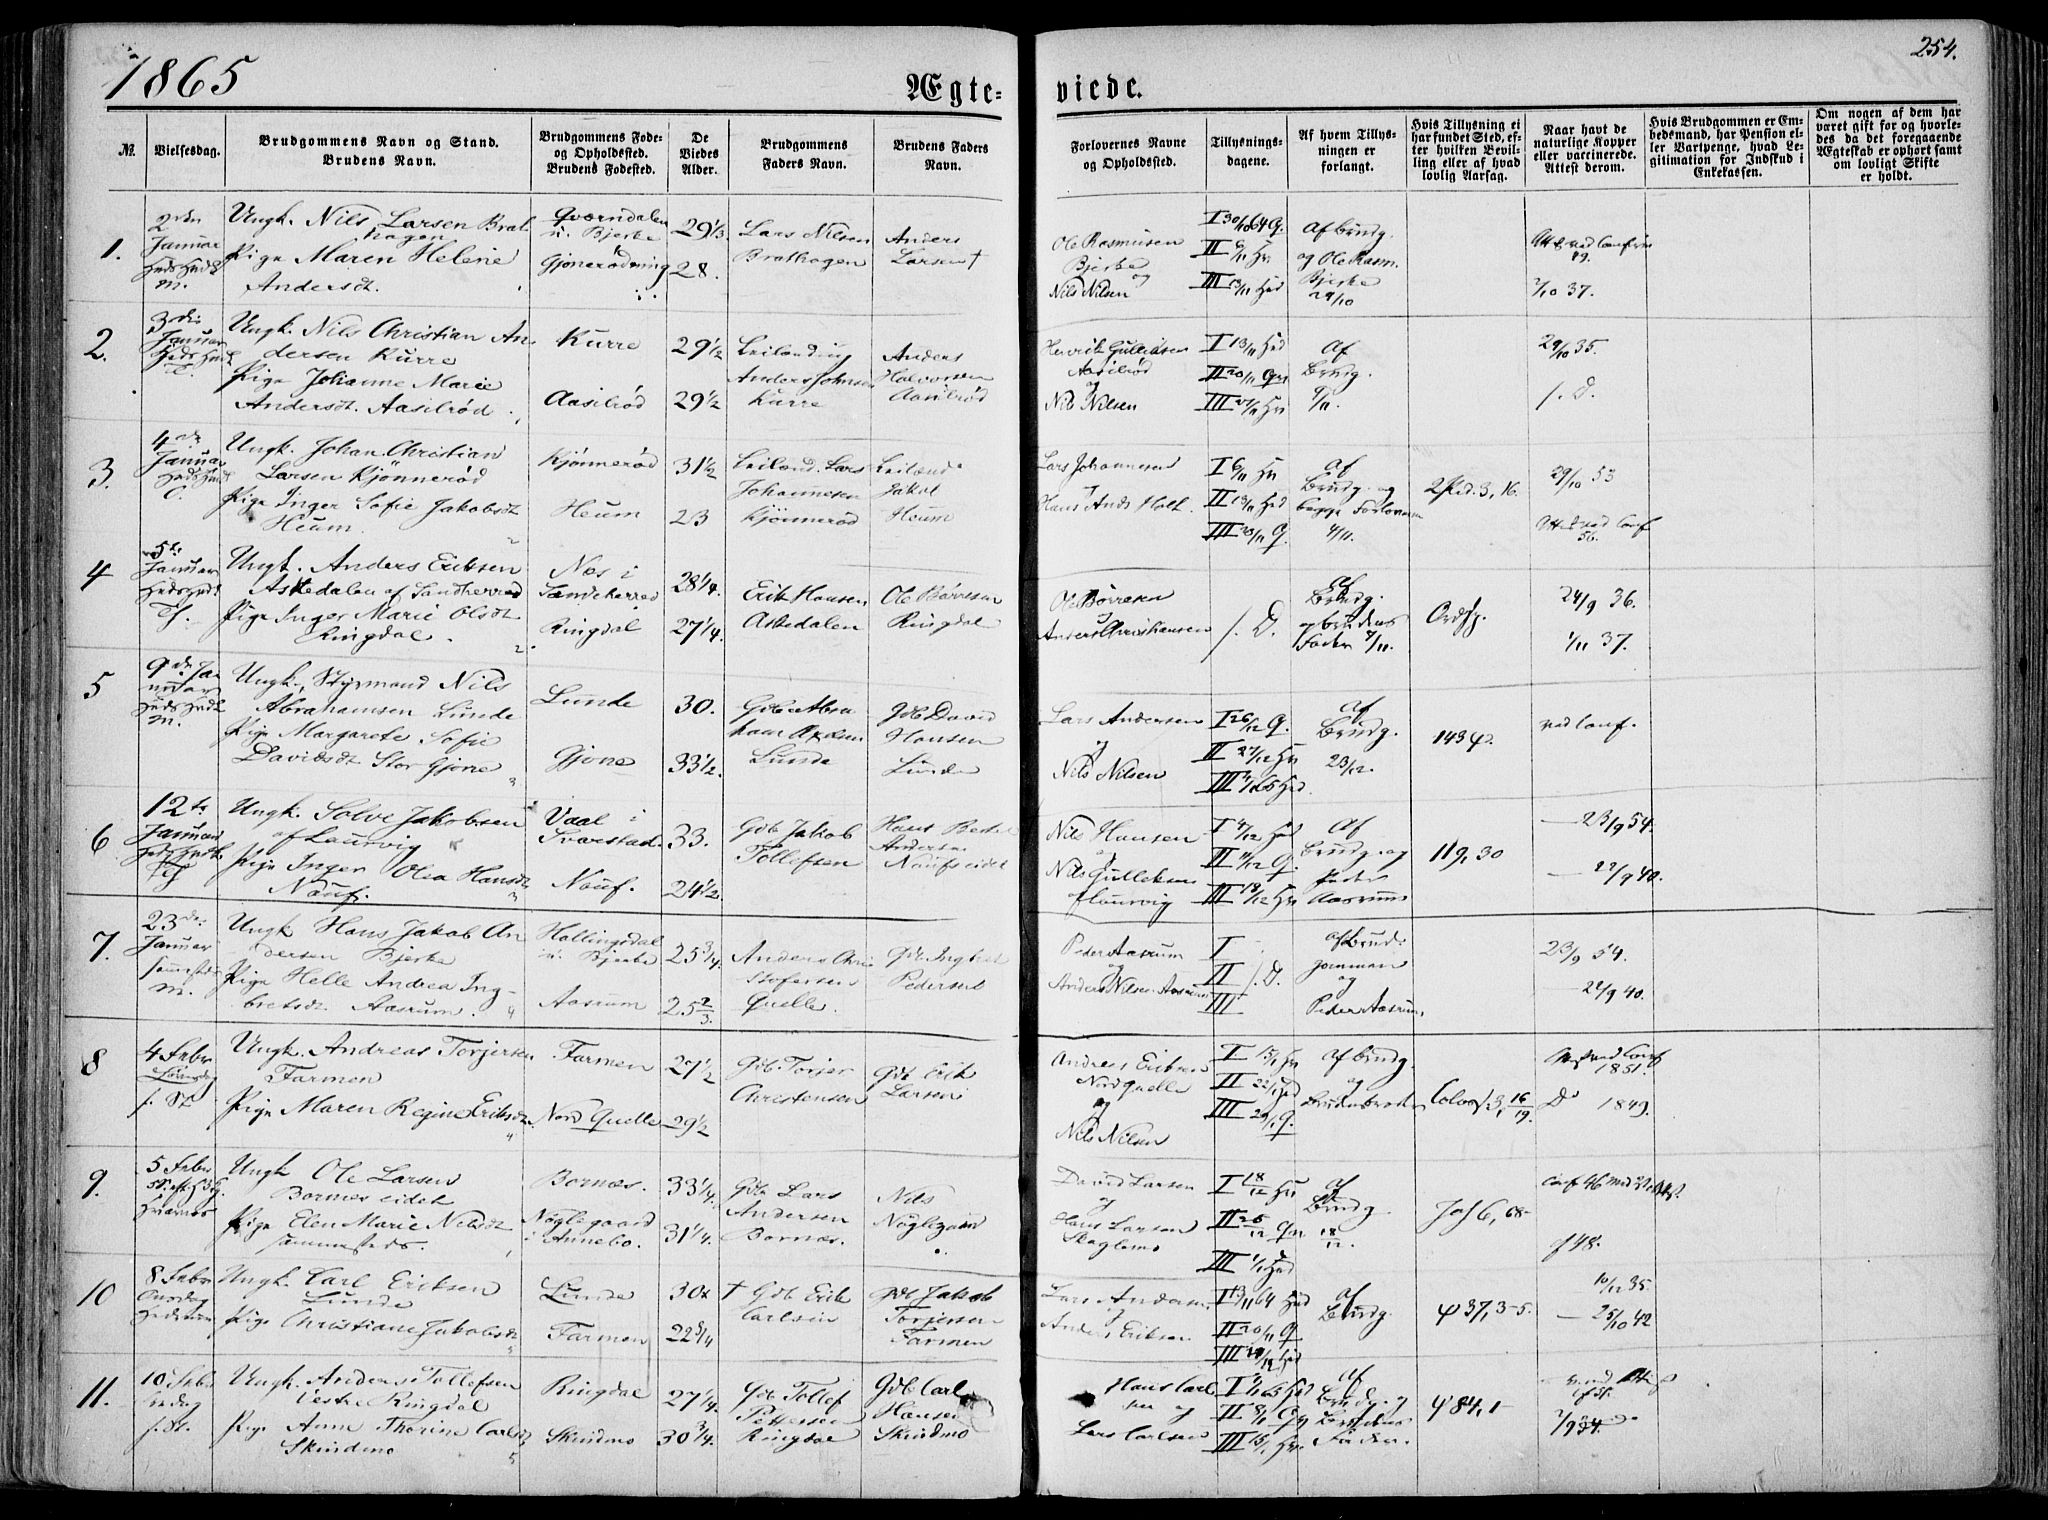 1865
Ægte-
viede.
254.
№.
Vielsesdag.
Brudgommens Navn og Stand.
Brudens Navn.
Brudgommens Føde-
og Opholdssted.
Brudens Fødested.
De
Viedes
Alder.
Brudgommens
Faders Navn.
Brudens Faders
Navn.
Forlovernes Navne
og Opholdssted.
Tillysnings-
dagene.
Af hvem Tillys-
ningen er
forlangt.
Hvis Tillysning ei
har fundet Sted, ef-
ter hvilken Bevil-
ling eller af hvad
lovlig Aarsag.
Naar havt de
naturlige Kopper
eller vaccinerede.
Attest derom.
Hvis Brudgommen er Em-
bedsmand, har Pension el-
ler Vartpenge, hvad Le-
gitimation for Indskud i
Enkekassen.
Om nogen af dem har
været gift før og hvorle-
des da det foregaaende
Ægteskab er ophørt samt
om lovligt Skifte
er holdt.
1.
2den
Januar
Ungk. Nils Larsen Brat
hagen
Pige Maren Helene
Andersdt.
Qværndalen
u. Bjerke
Gjønerødning
29 1/3
28.
Lars Nilsen
Brathagen
Anders
Larsen †
Ole Rasmusen
Bjerke
og
Nils Nilsen
I 30/10 64 Q.
II 6/11 Hv
III 13/11 Hed
Af Brudg.
og Ole Rasm.
Bjerke
29/10
7/10 37.
2.
3die
Januar
Ungk. Nils Christian An
dersen Kurre
Pige Johanne Marie
Andersdt. Aasilrød
Kurre
Aasilrød
29 1/2
29 1/2
Leilænding
Anders Johnsen
Kurre
Anders
Halvorsen
Aasilrød
Henrik Gulliksen
Aasilrød
og
Nils Nilsen
I 13/11 Hed
II 20/11 Qv
III 27/11 Hv
Af
Brudg.
29/10 35.
f. D.
3.
4de
Januar
Ungk. Johan Christian
Larsen Kjønnerød
Pige Inger Sofie Jakobsdt
Heum.
Kjønnerød
Heum
31 1/2
23
Leilænd. Lars
Johannesen
Kjønnerød
Leilænd
Jakob
Heum
Lars Johannesen
Hans Ands Holt.
I 6/11 Hv
II 13/11 Hed
III 20/11 Q.
af
Brudg. og
begge Forlovere
4/11.
29/10 53
56.
4
5te
Januar
Ungk. Anders Eriksen
Askedalen af Sandherred
Pige Inger Marie Olsdt
Ringdal.
Nes i
Sandeherred
Ringdal
28 1/4.
27 1/4.
Erik Hansen
Askedalen
Ole Børresen
Ringdal
Ole Børresen
Anders Christiansen
f. D.
af
Brudg.
og Brudens
Fader
24/9 36.
1/11 37.
5
9de Ja
nuar
Ungk., Styrmand Nils
Abrahamsen Lunde
Pige Margarete Sofie
Davidsdt Stor Gjøne
Lunde
Gjøne
30.
33 1/2.
Gdb. Abra
ham
Lunde
Gdb David
Hansen
Lunde
Lars Andersen
og
Nils Nilsen
I 26/12 Q.
II 27/12 Hv
III 1/1 65 Hed.
af
Brudg.
23/12.
ved Conf.
6
12te
Januar
Ungk. Solve Jakobsen
af Laurvig
Pige Inger Olea Hansdt
Nauf.
Vaal i
Svarstad.
Nauf.
33.
24 1/2
Gdb Jakob
Tollefsen
Hans
Anders.
Naufseidet
Nils Hansen
og
Nils Gulleksen
af Laurvig
I 4/12 Hed
II 11/12 Q.
III 18/12 Hv
Af
Brudg. og
Peder
Aasrum
119, 30
— 23/9 54.
— 22/9 40.
7.
23de
Januar
Ungk Hans Jakob An
dersen Bjerke
Pige Helle Andrea Ing-
bretsdt. Aasrum.
Hallingsdal
u. Bjerke
Aasrum
25 3/4.
25 2/3.
Anders Chri
stofersen
Quelle.
Gdb. Ingbret
Pedersen
Peder Aasrum
og
Anders Nilsen Aasrum
I
II f. D.
III
af Brud-
gommen
og
Peder Aasrum
23/9 54.
— 22/9 40.
8
4 Febr
Lørdag
Ungk. Andreas Torjersen
Farmen
Pige Maren Regine Eriksdt.
Farmen
Nord Quelle
27 1/2
29 1/2
Gdb. Torjer
Christensen
Gdb Erik
Larsen
Andreas Eriksen
Nordquelle
og
Nils Nilsen
I 15/1 Hv
II 22/1 Hed
III 29/1 Q.
af Brudg.
og
Brudens broder
1851.
Do 1849.
9.
5 Febr
Ungk Ole Larsen
Bornes eidet
Pige Elen Marie Nilsdt
sammesteds.
Bornæs.
Nøglegaard
i Annebo.
33 1/4.
31 1/4.
Gdb. Lars
Andersen
Bornæs.
Nils
Nøglegaard
David Larsen
og
Hans Larsen
Skoglsmo
I 18/12 Hv
II 25/12 Qv
III 1/1 Hed
af
Brudg.
18/12.
f 48.
10
8 Febr
Onsdag
Hedrum
Ungk. Carl Eriksen
Lunde
Pige Christiane Jakobsdt
Lunde
Farmen
30
22 3/4
† Gdb Erik
Carlsen
Gdb Jakob
Torjersen
Farmen
Lars Andersen
og
Anders Eriksen
I 13/11 64 Hed
II 20/11 Q
af
Brudg.
10/12 35.
— 25/10 42
11.
10 Febr
Ungk. Anders Tollefsen
Vestre Ringdal
Pige Anne Thorine Carlsdt
Skindmo
Ringdal
Skindmo
27 1/4.
30 3/4.
Gdb. Tollef
Pettersen
Ringdal
Gdb Carl
Hansen
Skindmo
Hans Carl
sen og
Lars Carlsen
I 1/1 65 Hed
II 8/1 Q
III 15/1 Hv
af
Brudg. og
Brudens
Fader.